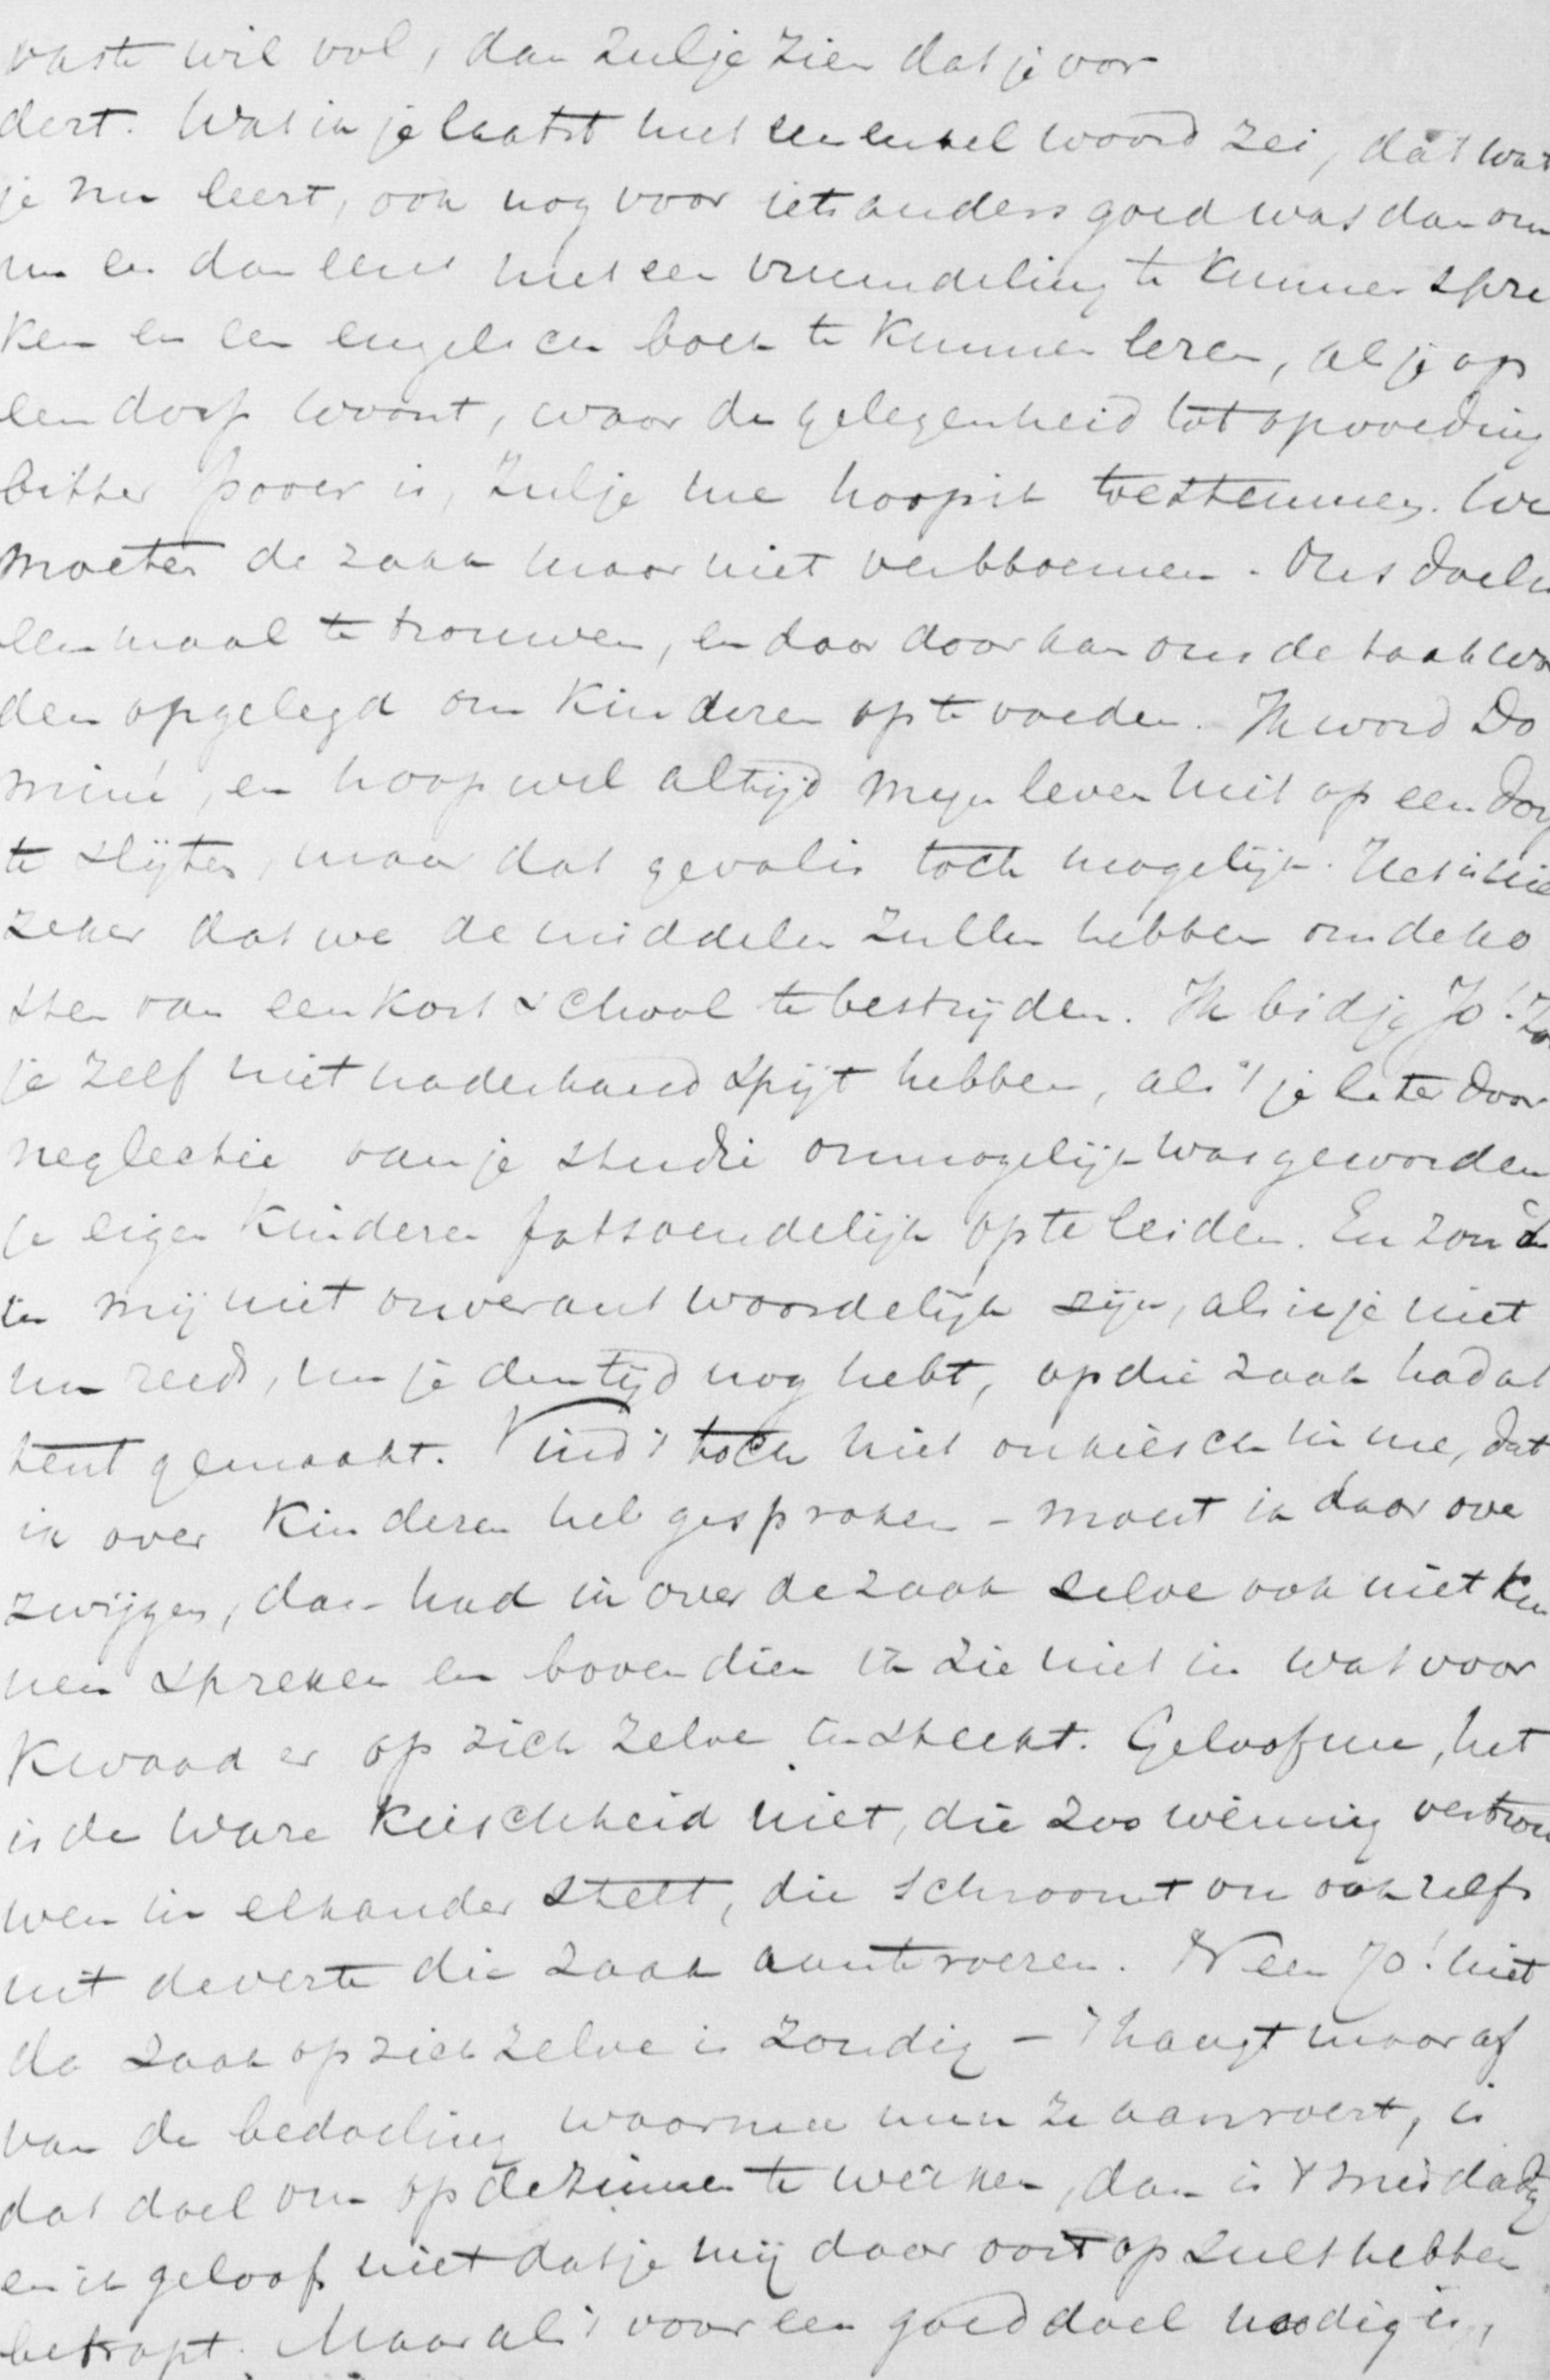 vaste wil vol, dan zulje zien dat je vor
dert. Wat ik je laatst met een enkel woord zei, dát wat
je nu leert, ook nog voor iets anders goed was dan om
nu en dan eens met een vreemdeling te kunnen spre
ken en een engelsch boek te kunnen lezen, als je op
een dorp woont, waar de gelegenheid tot opvoeding
bitter pover is, zulje me hoop ik toestemmen. We
moeten de zaak maar niet verbloemen. Ons doel is
eenmaal te trouwen, en daar door kan ons de taak wor
den opgelegd om kinderen op te voeden. Ik word Do
miné, en hoop wel altijd mijn leven niet op een dorp
te slijten, maar dat geval is toch mogelijk. Het is niet
zeker dat we de middelen zullen hebben om de ko
sten van een kostschool te bestrijden. Ik bid je Jo! Zou
je zelf niet naderhand spijt hebben, als 't je later door
neglectie van je studie onmogelijk was geworden
je eigen kinderen fatsoendelijk op te leiden. En zou 't
in mij niet onverantwoordelijk zijn, als ik je niet
nu reeds, nu je den tijd nog hebt, op die zaak had at
tent gemaakt. Vind 't toch niet onkiesch in me, dat
ik over kinderen heb gesproken – moest ik daar over
zwijgen, dan had ik over de zaak zelve ook niet kun
nen spreken en bovendien ik zie niet in wat voor
kwaad er op zich zelve in steekt. Geloof me, het
is de ware kieschheid niet, die zoo weinig vertrou
wen in elkander stelt, die schroomt om ook zelfs
uit de verte die zaak aan te roeren. Neen Jo! niet
de zaak op zich zelve is zondig – 't hangt maar af
van de bedoeling waarmee men ze aanroert, is
dat doel om op de zinnen te werken, dan is 't misdadig
en ik geloof niet dat je mij daar ooit op zult hebben
betrapt. Maar als 't voor een goed doel noodig is,